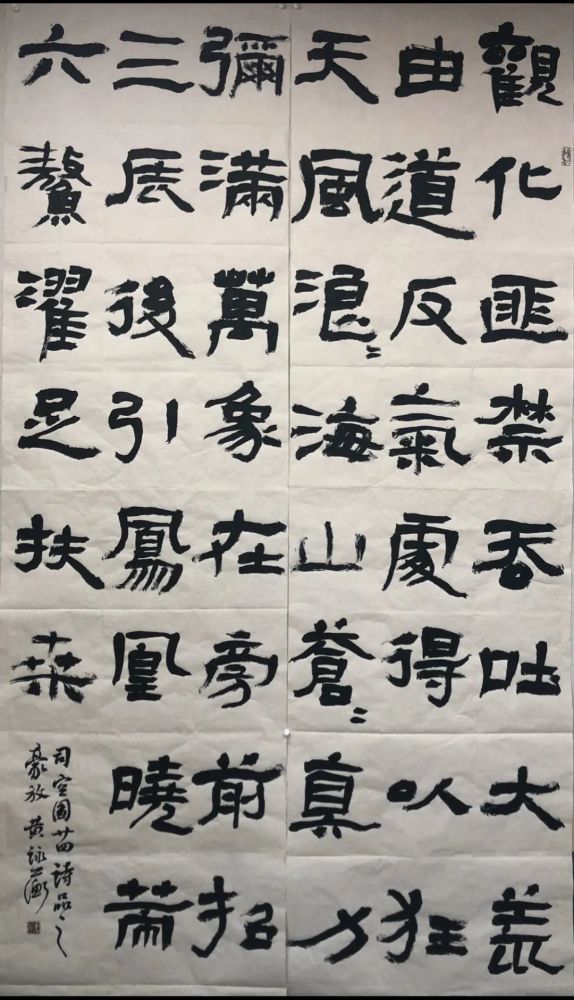 觀化匪禁吞吐大荒
由道反氣處得以狂
天風浪〻海山蒼〻真力
彌滿萬象在旁前招
三辰後引鳳凰曉策
六鰲濯足扶桒
司空圖廿四詩品之
豪放 黃詠